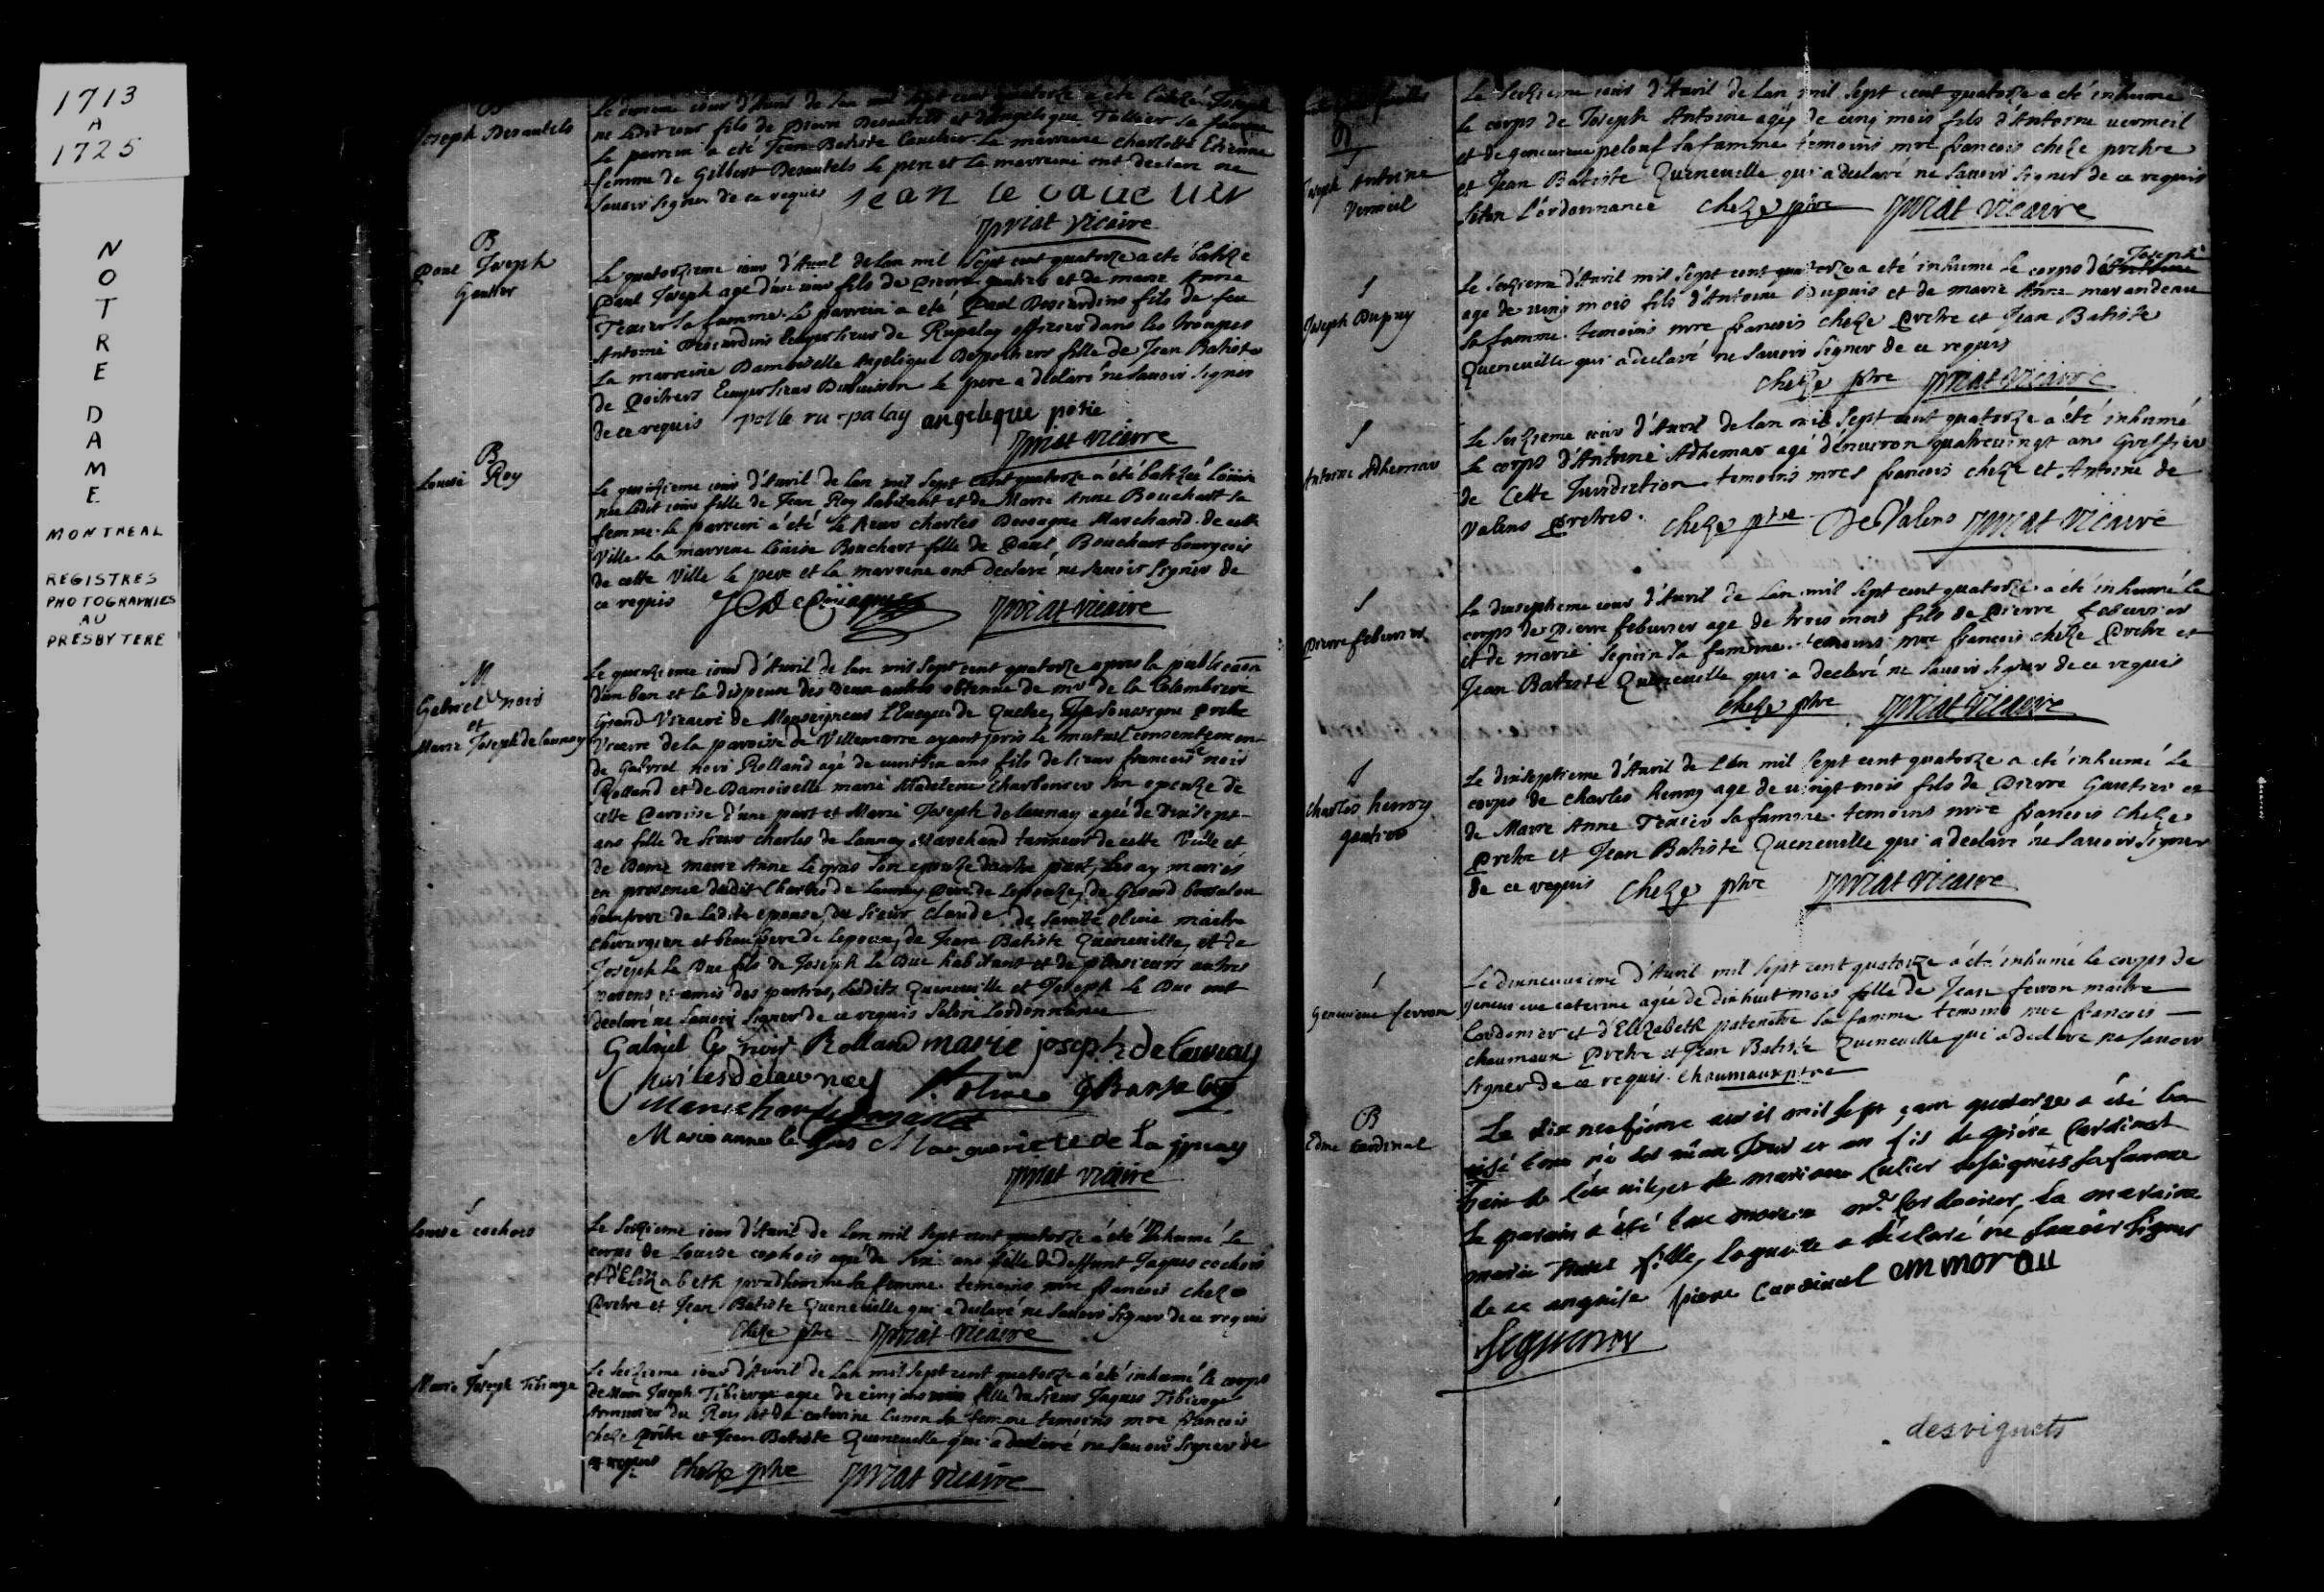 1713
A
1725
NOTRE DAME
MONTREAL
REGISTRES
PHOTOGRAPHIES
AU
PRESBYTERE
B
Joseph Desautels
Le jour d'Avril de lan mil sept cent quatorze a été batizé Joseph
né ledit jour fils de Pierre Desautels et d'Angelique Tellier sa femme
Le parrein a été Jean Batiste La marreine charlotte Etienne
femme de Gilbert Desautels le pere et la marreine ont declaré ne
savoir signer de ce requis
priat vicaire
B
Paul Joseph
Gautier
Le quatorzieme iour d'Avril de lan mil sept cent quatorze a eté batizé
Paul Joseph agé d'un iour fils de Pierre gautier et de marie Anne
Texier sa famme. Le parrein a eté Paul Desiardins fils de feu
Antoine Desiardins Ecuyer sieur de Rupalay officier dans les troupes
La marreine Damoiselle Angelique Despoitiers fille de Jean Batiste
de Poitiers Ecuyer sieur Dubuisson le pere a declaré ne savoir signer
de ce requis polle ru-palay angelique potie
priat vicaire
B
Louise Roy
Le quinzieme iour d'Avril de lan mil sept cent quatorze a été batizée Louise
née ledit iour fille de Jean Roy habitant et de Marie Anne Bouchart sa
femme. le parrein a été le sieur charles Marchand de cette
Ville. la marreine Louise Bouchart fille de Paul Bouchart bourgeois
de cette Ville le pere et la marreine ont declaré ne savoir signer de
ce requis priat vicaire
M
Gabriel Le nois
et
Marie Joseph de launay
Le quinzieme iour d'Avril de lan mil sept cent quatorze apres la publicaõn
d'un ban et la dispense des deux autres obtenue de mr de la Colombiere
Grand Vicaire de Monseigneur L'Eveque de Quebec, Je soussigné Pretre
Vicaire de la paroisse de Villemarie ayant pris le mutuel consentement
de Gabriel nois Rolland agé de ans fils de sieur francois le nois
Rolland et de Damoiselle marie Madeleine Charbonier son epouze de
cette Paroisse d'une part et Marie Joseph de launay agée de dixsept
ans fille de sieur charles de Launay Marchand tanneur de cette Ville et
de Dame marie Anne Legras son epouze dautre part, Les ay mariés
en presence dudit Charles de Launay Pere de Lepouze, de Gerard
beaufrere de Ladite epouse, du sieur claude de Sainte olive maitre
chirurgien et beaufrere de Lepouse, de Jean Batiste Queneville, et de
Joseph Le Duc fils de Joseph Le Duc habitant et de plusieurs autres
parens et amis des parties, Lesdits Queneville et Joseph Le Duc ont
declaré ne savoir signer de ce requis selon Lordonnance
Gabriel le nois Rolland marie joseph de launay
Charles delaunay St olive
Marie anne le gras Marguerite de la
priat vicaire
S
Louise cochois
Le seizieme iour d'Avril de lan mil sept cent quatorze a été inhumé le
corps de Louise cochois agé de six ans fille de deffunt Jaques cochois
et d'Elizabeth prudhomme sa femme. temoins mre francois cheze
Pretre et Jean Batiste Queneville qui a declaré ne savoir signer de ce requis
Cheze ptre priat vicaire
S
Marie Joseph Tibierge
Le seizieme iour d'Avril de lan mil sept cent quatorze a été inhumé le corps
de Marie Joseph Tibierge agee de cinq fille du sieur Jaques Tibierge
Armurier du Roy et de caterine Lunon sa femme temoins mre francois
cheze Pretre et Jean Batiste Queneville qui a declaré ne savoir signer de
ce requis Cheze ptre priat vicaire
S
Joseph Antoine
Vermeil
Le seizieme iour d'Avril de lan mil sept cent quatorze a eté inhumé
le corps de Joseph Antoine agé de cinq mois fils d'Antoine vermeil
et de genevieve pelouf sa famme. temoins mre francois cheze pretre
et Jean Batiste Queneuille qui a declaré ne savoir signer de ce requis
selon l'ordonnance cheze ptre priat vicaire
S
Joseph Dupuy
Le seizieme d'Avril mil sept cent quatorze a eté inhumé le corps de Joseph
agé de mois fils d'Antoine Dupuis et de marie Anne marandeau
sa famme. temoins mre francois cheze Pretre et Jean Batiste
Queneuille qui a declaré ne savoir signer de ce requis
cheze ptre priat vicaire
S
Antoine Adhemar
Le seizieme iour d'Avril de lan mil sept cent quatorze a été inhumé
le corps d'Antoine Adhemar agé d'environ quatrevingt ans Greffier
de Cette Jurisdiction temoins mres francois cheze et Antoine de
Valens Pretres. cheze ptre De Valens priat vicaire
S
Pierre feburier
Le dixseptieme iour d'Avril de lan mil sept cent quatorze a été inhumé le
corps de Pierre feburier agé de trois mois fils de Pierre feburier
et de marie seguin sa famme. temoins mre francois cheze Pretre et
Jean Batiste Queneuille qui a declaré ne savoir signer de ce requis
cheze ptre priat vicaire
S
Charles henry
gautier
Le dixseptieme d'Avril de L'an mil sept cent quatorze a eté inhumé Le
corps de charles henry agé de vingt mois fils de Pierre Gautier et
de Marie Anne Texier sa famme. temoins mre francois cheze
Pretre et Jean Batiste Queneuille qui a declaré ne savoir signer
de ce requis cheze ptre priat vicaire
S
Genevieve ferron
Le dixneuvieme d'Avril mil sept cent quatorze a été inhumé le corps de
genevieve caterine agée de dixhuit mois fille de Jean ferron maitre
Cordonier et d'Elizabeth patenotre sa famme temoins mre francois
chaumaux Pretre et Jean Batiste Queneuille qui a declaré ne savoir
signer de ce requis. Chaumaux ptre
B
Edme Cardinal
Le dix neufiéme avril mil sept çant quatorze a été ba
tisé né le même Jour et an fis de piére Cardinal
de et de marianne sa famme
Le parain a été moreau md Cordonier, La maraine
marie fille, laquelle a déclaré ne savoir signer
de ce anquise piere Cardinal em morau
Seguenot
desviguets